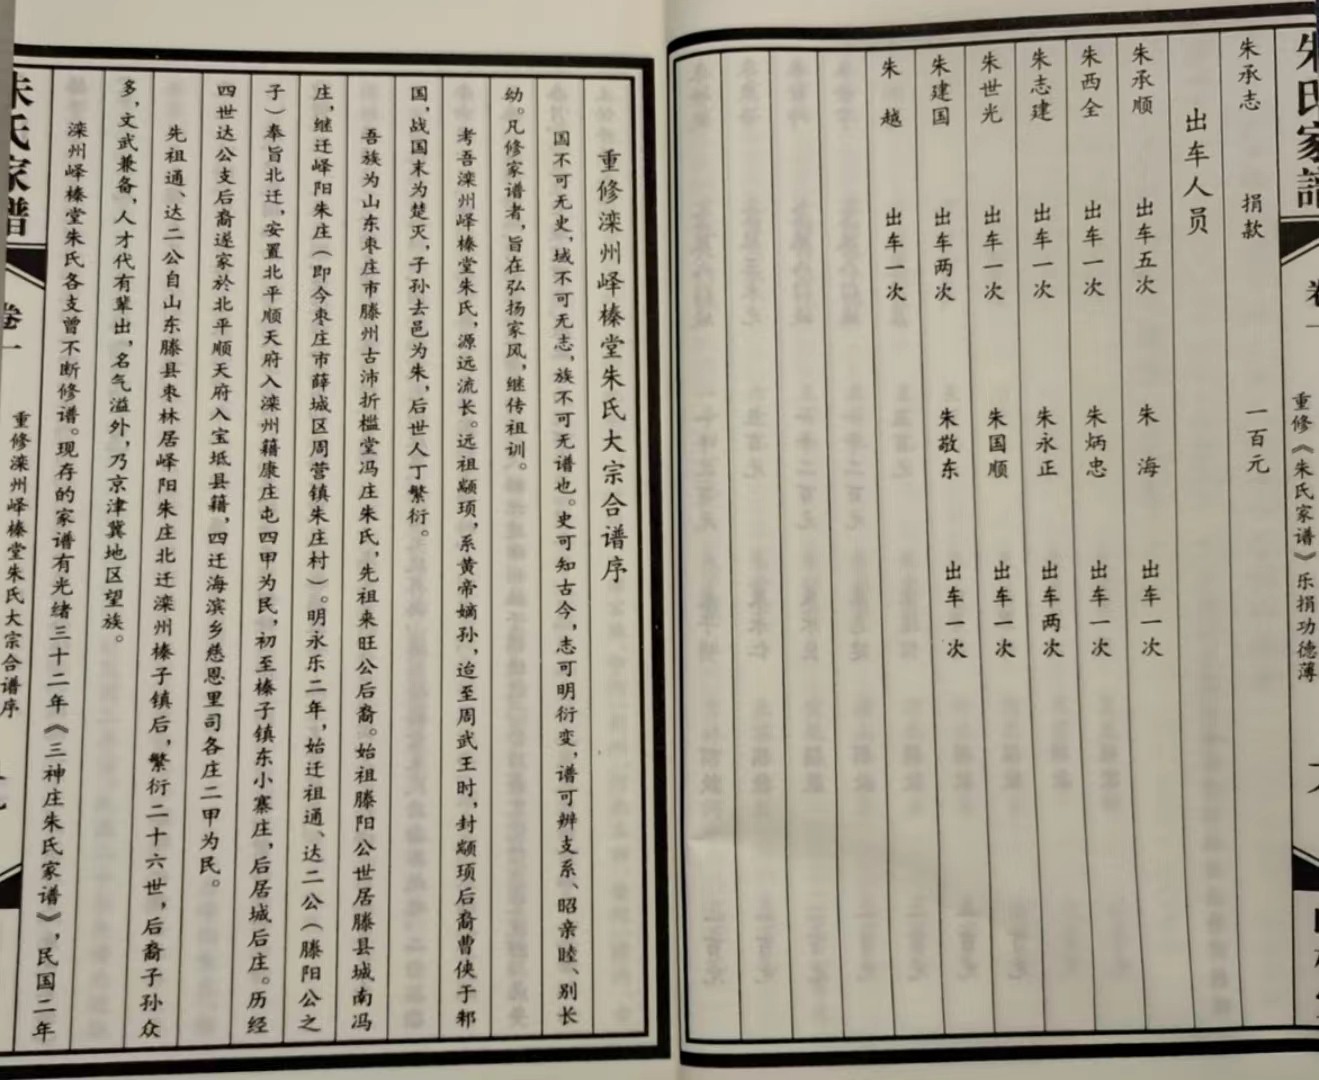 朱氏家谱
卷一
重修《朱氏家谱》乐捐功德薄
朱承志 捐款 一百元
出车人员
朱承顺 出车五次 朱海 出车一次
朱西全 出车一次 朱炳忠 出车一次
朱志建 出车一次 朱永正 出车两次
朱世光 出车一次 朱国顺 出车一次
朱建国 出车两次 朱敬东 出车一次
朱越 出车一次
重修滦州峄榛堂朱氏大宗合谱序
国不可无史，域不可无志，族不可无谱也。史可知古今，志可明衍变，谱可辨支系、昭亲睦、别长
幼。凡修家谱者，旨在弘扬家风，继传祖训。
考吾滦州峄榛堂朱氏，源远流长。远祖颛顼，系黄帝嫡孙，迨至周武王时，封颛顼后裔曹侠于邾
国，战国末为楚灭，子孙去邑为朱，后世人丁繁衍。
吾族为山东枣庄市滕州古沛折槛堂冯庄朱氏，先祖来旺公后裔。始祖滕阳公世居滕县城南冯
庄，继迁峄阳朱庄（即今枣庄市薛城区周营镇朱庄村）。明永乐二年，始迁祖通、达二公（滕阳公之
子）奉旨北迁，安置北平顺天府入滦州籍康庄屯四甲为民，初至榛子镇东小寨庄，后居城后庄。历经
四世达公支后裔遂家於北平顺天府入宝坻县籍，四迁海滨乡慈恩里司各庄二甲为民。
先祖通、达二公自山东滕县枣林居峄阳朱庄北迁滦州榛子镇后，繁衍二十六世，后裔子孙众
多，文武兼备，人才代有辈出，名气溢外，乃京津冀地区望族。
滦州峄榛堂朱氏各支曾不断修谱。现存的家谱有光绪三十二年《三神庄朱氏家谱》，民国二年
朱氏家谱
卷一
重修滦州峄榛堂朱氏大宗合谱序